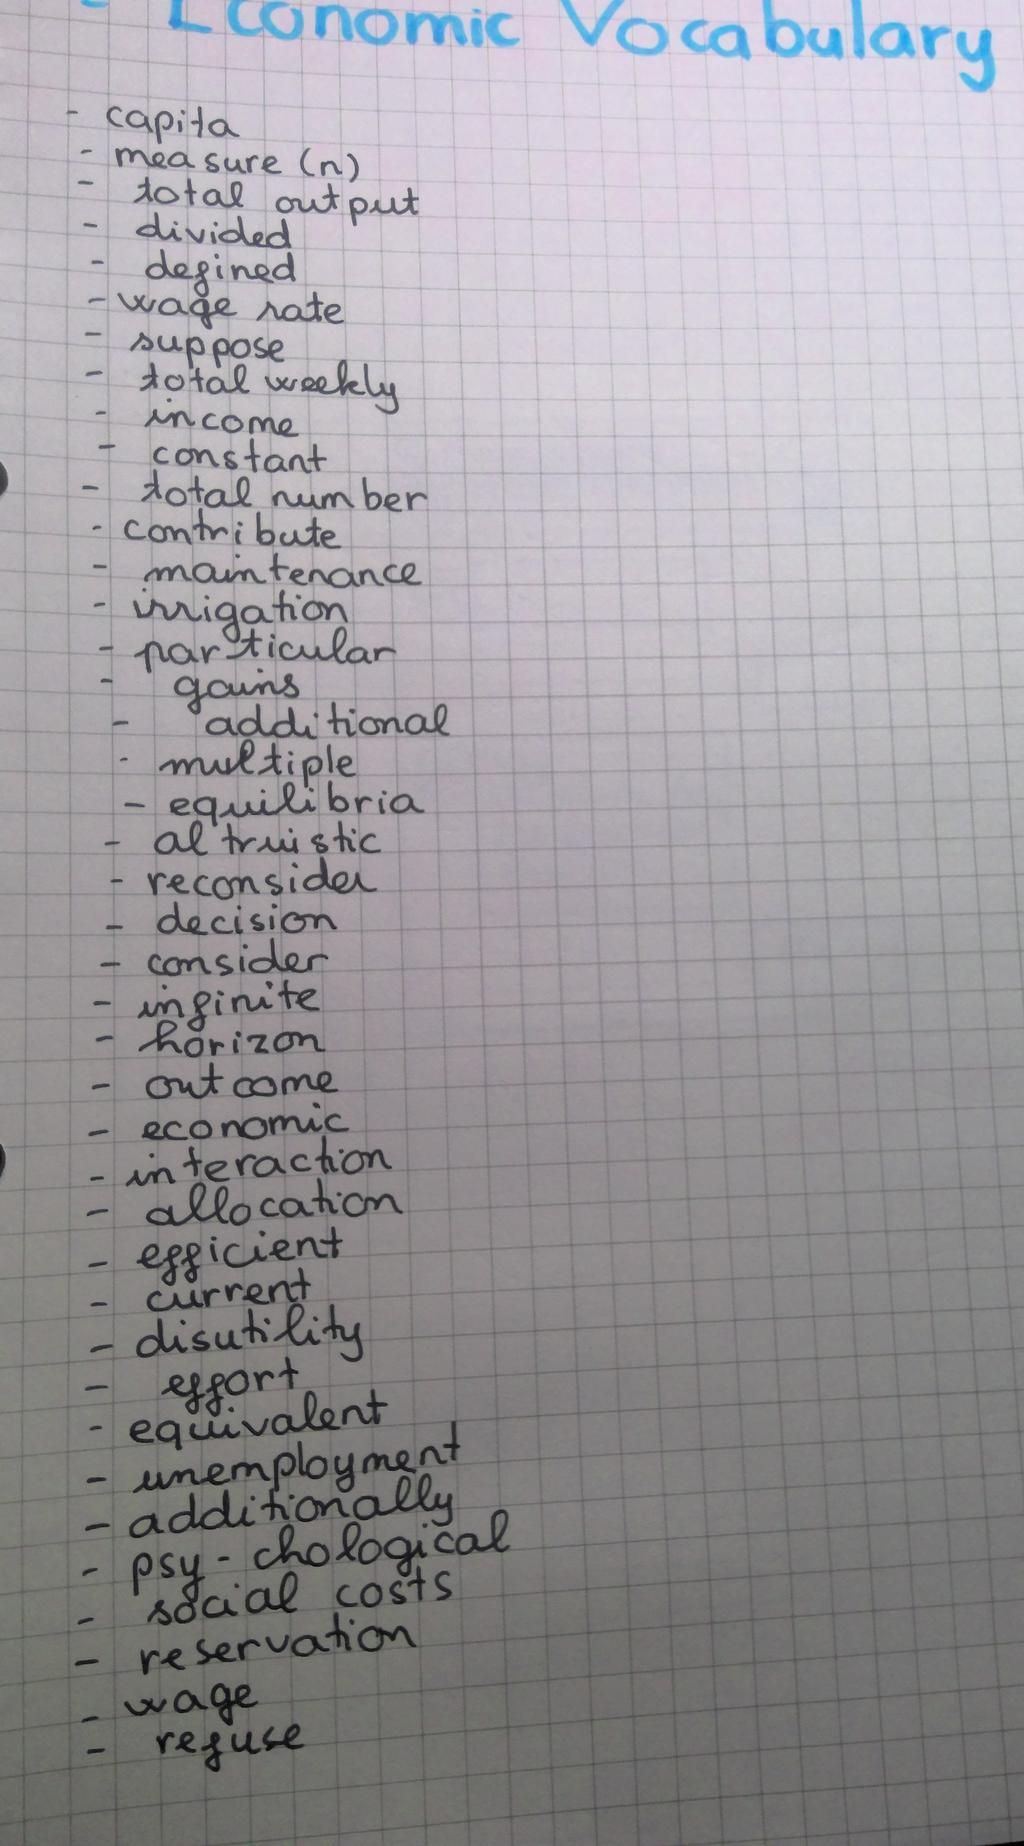 - Economic Vocabulary
- capita
- measure (n)
- total output
- divided
- defined
- wage rate
- suppose
- total weekly
- income
- constant
- total number
- contribute
- maintenance
- irrigation
- particular
- gains
- additional
- multiple
- equilibria
- altruistic
- reconsider
- decision
- consider
- infinite
- horizon
- outcome
- economic
- interaction
- allocation
- efficient
- current
- disutility
- effort
- equivalent
- unemployment
- additionally
- psy-chological
- social costs
- reservation
- wage
- refuse